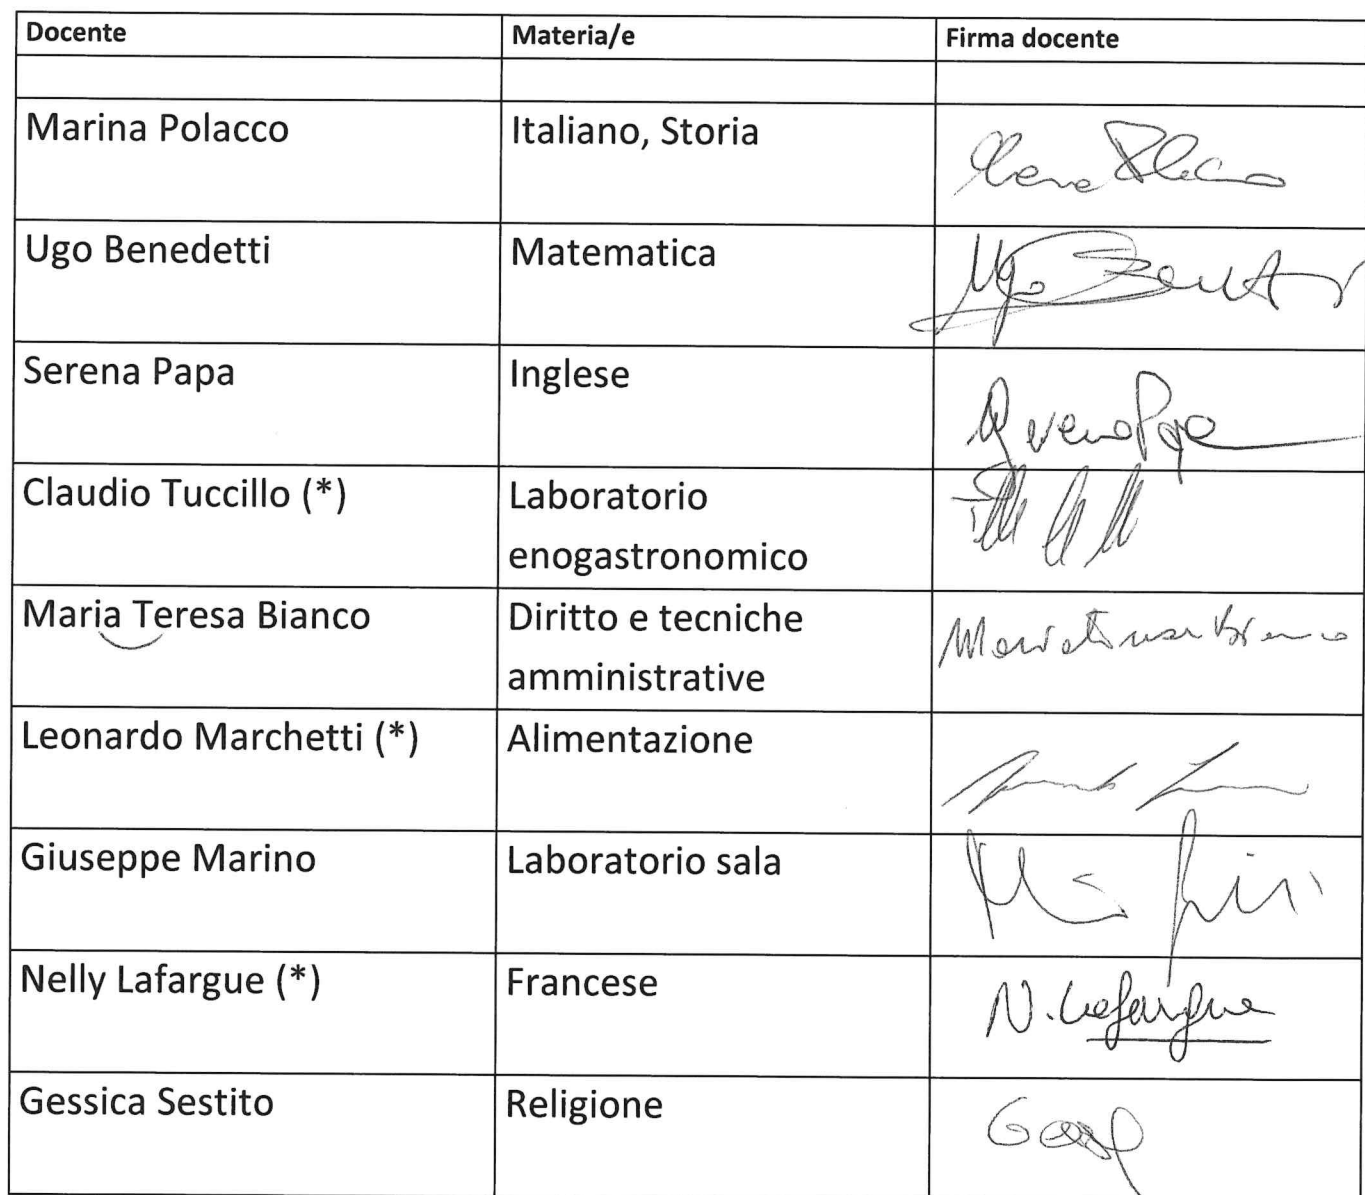 Docente Materia/e Firma docente
Marina Polacco Italiano, Storia
Ugo Benedetti Matematica
Serena Papa Inglese
Claudio Tuccillo (*) Laboratorio
enogastronomico
Maria Teresa Bianco Diritto e tecniche
amministrative
Leonardo Marchetti (*) Alimentazione
Giuseppe Marino Laboratorio sala
Nelly Lafargue (*) Francese N. Lafargue
Gessica Sestito Religione